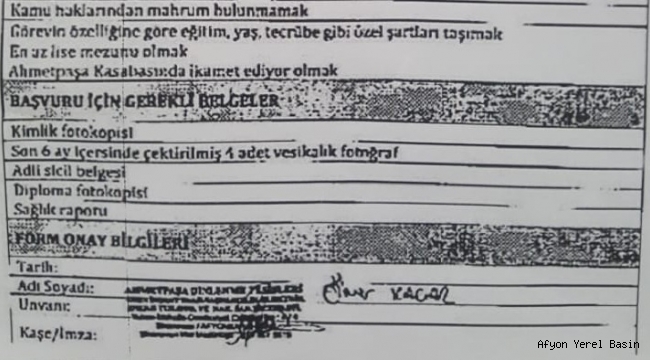 Kamu haklarından mahrum bulunmamak
Görevin özelliğine göre eğitim, yaş, tecrübe gibi özel şartları taşımak
En az lise mezunu olmak
Ahmetpaşa Kasabasında ikamet ediyor olmak
BAŞVURU İÇİN GEREKLİ BELGELER
Kimlik fotokopisi
Son 6 ay içersinde çektirilmiş 4 adet vesikalık fotoğraf
Adli sicil belgesi
Diploma fotokopisi
Sağlık raporu
FORM ONAY BİLGİLERİ
Tarih:
Adı Soyadı:
Ünvanı:
Kaşe/İmza:
Afyon Yerel Basin